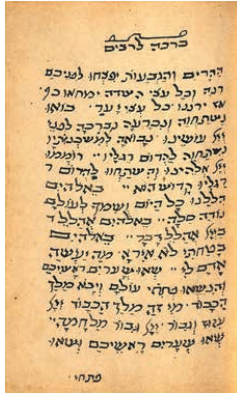 ברכה לרבים
ההרים והגבעות יפצחו לפניכם
רנה וכל עצי השדה ימחאו כף
אז ירננו כל עצי יער בואו
נשתחוה ונכרעה נברכה לפני
ייי עושינו נבואה למשכנותיו
נשתחוה להדום רגליו רוממו
ייי אלהינו והשתחוו להדום ר
רגליו קדוש הוא באלהים
הללנו כל היום ושמך לעולם
נודה סלה באלהים אהלל ד
בייי אהלל דבר באלהים
בטחתי לא אירא מה יעשה
אדם לי שאו שערים ראשיכם
והנשאו פתחי עולם ויבוא מלך
הכבוד מי זה מלך הכבוד ייי
עזוז וגבור ייי גבור מלחמה
שאו שערים ראשיכם ושאו
פתחי